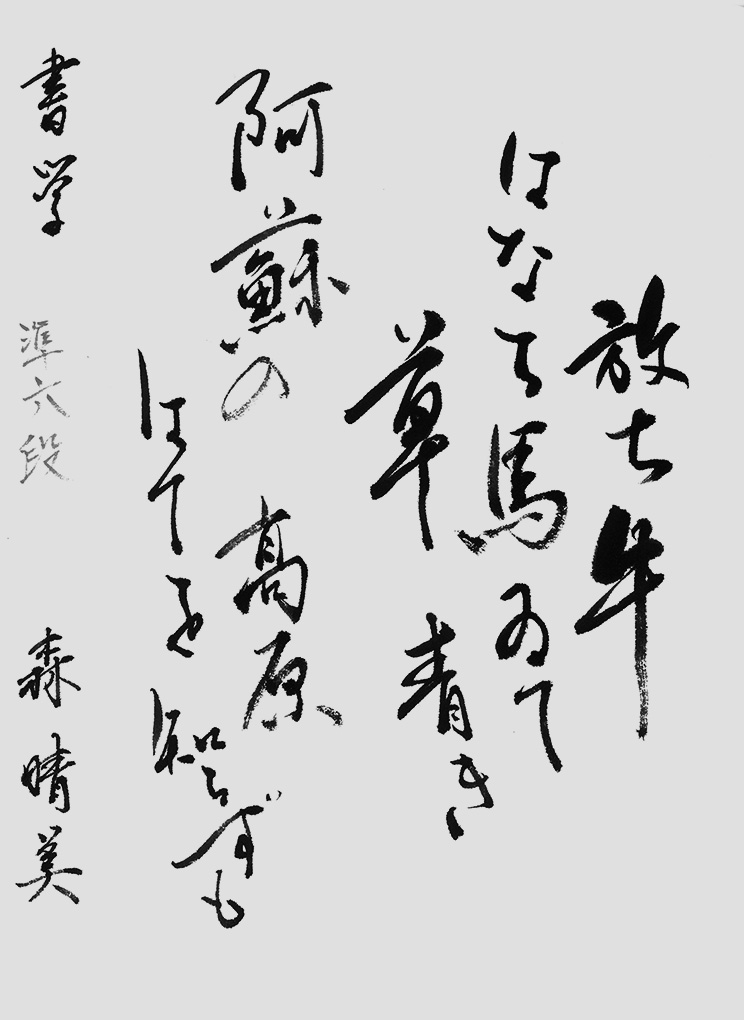 放ち牛
はなち馬ゐて
草青き
阿蘇の高原
はてを知らずも
書学 準六段 森晴美